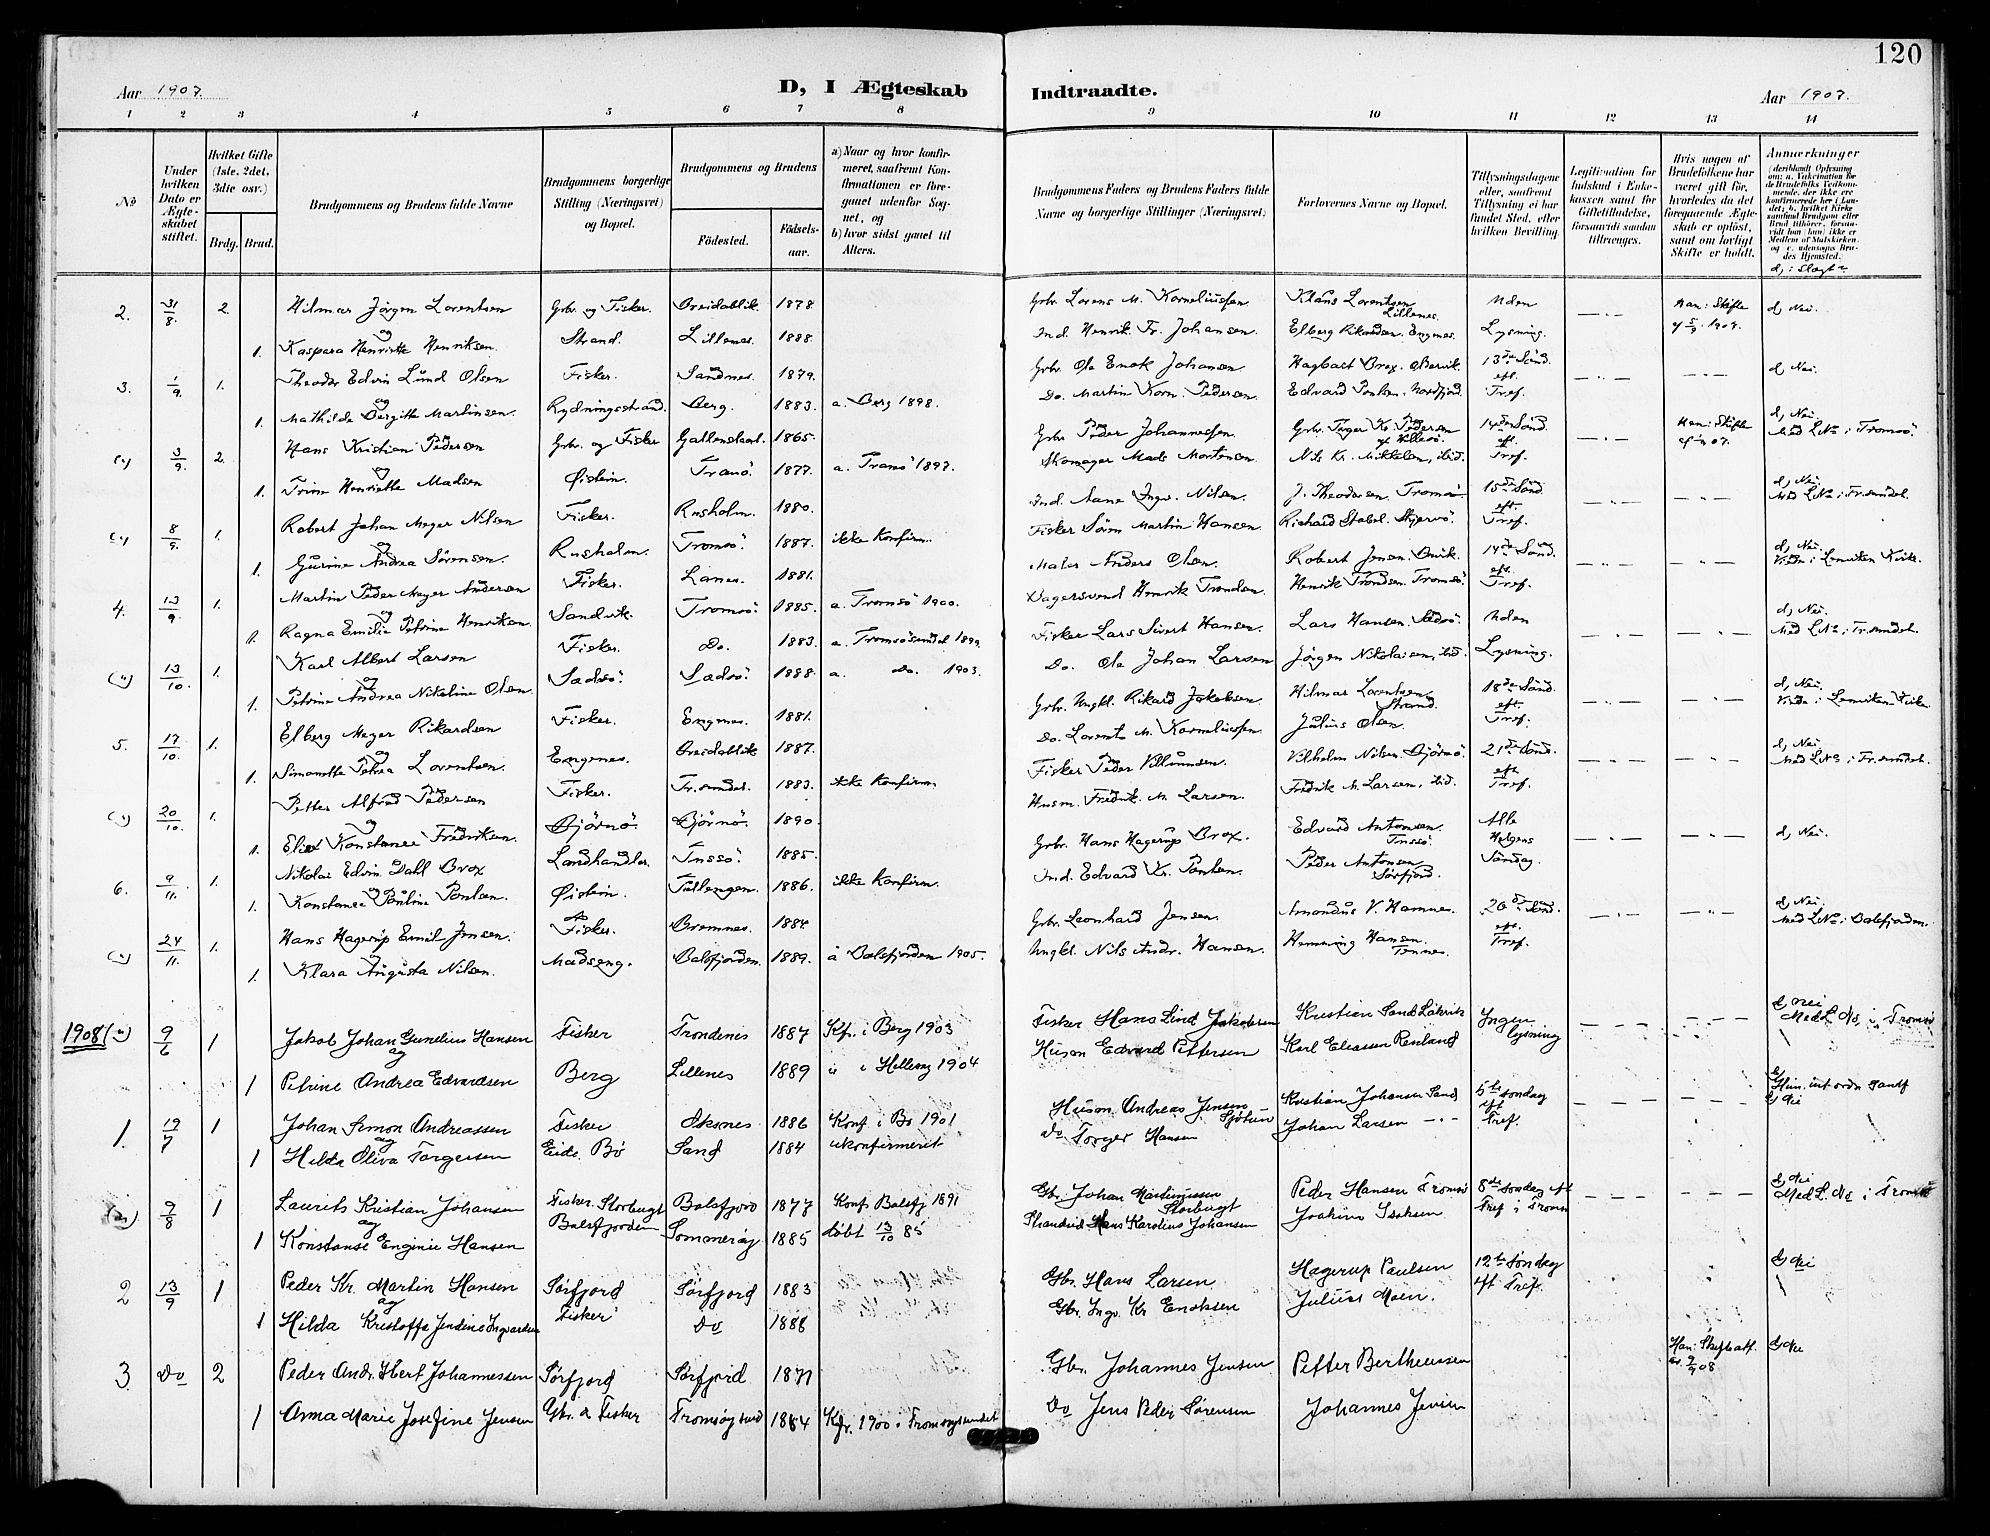 120
Aar 1907. D, I Ægteskab Indtraadte. Aar 1907.
1 2 3 4 5 6 7 8 9 10 11 12 13 14
No
Under hvilken Dato er Ægteskabet stiftet.
Hvilket Gifte (1ste, 2det, 3die osv.)
Brdg. Brud.
Brudgommens og Brudens fulde Navne
Brudgommens borgerlige Stilling (Næringsvei) og Bopæl.
Brudgommens og Brudens
Fødested. Fødselsaar.
a) Naar og hvor konfirmeret, saafremt Konfirmationen er foregaaet udenfor Sognet, og
b) hvor sidst gaaet til Alters.
Brudgommens Faders og Brudens Faders fulde Navne og borgerlige Stillinger (Næringsvei)
Forlovernes Navne og Bopæl.
Tillysningsdagene eller, saafremt Tillysning ei har fundet Sted, efter hvilken Bevilling.
Legitimation for Indskud i Enkekassen samt for Giftetilladelse, forsaavidt saadan tiltrænges.
Hvis nogen af Brudefolkene har været gift før, hvorledes da det foregaaende Ægteskab er opløst, samt om lovligt Skifte er holdt.
Anmærkninger (deriblandt Oplysning om: a. Vaccination for de Brudefolks Vedkommende, der ikke ere konfirmerede her i Landet; b. hvilket Kirkesamfund Brudgom eller Brud tilhører, forsaavidt han (hun) ikke er Medlem af Statskirken og c. udensogns Brudes Hjemsted.
2. 31/8. 2. Hilmar Jørgen Lorentsen Grbr. og Fisker. Breidablik 1878 Grbr. Lorens M. Korneliussen Klaus Lorentsen Lillenes. Uden Han: Skifte d, Nei.
og
1. Kaspara Henriette Henriksen. Strand. Lillenes. 1888. Ind. Henrik Fr. Johansen. Elberg Rikardsen. Engenes. Lysning.
3. 1/9. 1. Theodor Edvin Lund Olsen Fisker. Sandnes. 1879. Grbr. Ole Enok Johansen Hagbart Brox. 13de Sønd. eft. d, Nei.
og
1. Mathilde Bergitte Martinsen. Rydningsstrand. Berg. 1883. a. Berg 1898. Do. Martin Korn. Pedersen Edvard Poulsen. Nordfjord. Tref.
(") 3/9. 2. Hans Kristian Pedersen Grbr. og Fisker 1865. Grbr Peder Johannessen 14de Sønd. eft. Han: Skifte d, Nei. Med L.No i Tromsø.
og
1. Trine Henriette Madsen Øistein. Tranø 1877. a. Tranø 1897. Skomager Mads Mortensen Nils Kr. Mikkelsen, ibid. Tref.
(") 8/9. 1. Robert Johan Meyer Nilsen Fisker. Rusholm. 1880. Ind. Aane Ingv. Nilsen. J. Theodorsen. Tromsø 15de Sønd. eft. d, Nei. Med L.No i Tr.sundet.
og
1. Gurine Andrea Sørensen. Rusholm. Tromsø. 1887. ikke Konfirm. Fisker Søren Martin Hansen Richard Stabel. Skjervø. Tref.
4. 13/9. 1. Martin Peder Meyer Andersen Fisker. Lanes. 1881. Maler Anders Olsen. Robert Jensen. 14de Sønd. eft. d, Nei. Viede i Lenviken Kirke.
og
1. Ragna Emilie Petrine Henriksen Sandvik. Tromsø. 1885. a. Tromsø 1900. Dagersvend Henrik Trondsen Henrik Trondsen. Tromsø. Tref.
(") 13/10. 1. Karl Albert Larsen Fisker. Do. 1883. a. Tromsøsundet 1899. Fisker Lars Sivert Hansen. Lars Hansen. Uden d, Nei. Med L.No i Tr.sundet.
og
1. Petrine Andrea Nikoline Olsen. 1888. a. Do. 1903. Do. Ole Johan Larsen Jørgen Nikolaisen, ibid. Lysning.
5. 17/10. 1. Elberg Meyer Rikardsen Fisker. Engenes. 1881. Grbr. Ungkl. Rikard Jakobsen Hilmar Lorentsen Strand. 18de Sønd. eft. d, Nei. Viede i Lenviken Kirke
og
1. Simonette Petrea Lorentsen. Engenes. Breidablik 1887. Do. Lorents M. Korneliussen Julius Olsen Tref.
(") 20/10. 1. Petter Alfred Pedersen Fisker. Tr.sundet. 1883. ikke Konfirm. Fisker Peder Villumsen. Vilhelm Nilsen. Bjørnø. 21de Sønd. eft. d, Nei. Med L.No i Tr.sundet.
og
1. Konstance Fredriksen Bjørnø. Bjørnø. 1890. Husm. Fredrik M. Larsen. Fredrik M. Larsen, ibid. Tref.
6. 9/11. 1. Nikolai Edvin Dahl Brox Landhandler. 1885. Grbr. Hans Hagerup Brox. Edvard Antonsen. Alle Helgens d, Nei.
og
1. Konstance Pauline Poulsen. Øistein. 1886. ikke Konfirm. Ind. Edvard Kr. Poulsen. Peder Antonsen Sørfjord. Søndag.
(") 24/11. 1. Hans Hagerup Emil Jensen. Fisker. Bremnes. 1884. Grbr. Leonhard Jensen. Amandus V. Hamnes. 26de Sønd. eft. d, Nei. Med L.No i Balsfjorden.
og
1. Klara Augusta Nilsen. Madseng. Balsfjorden. 1889. a Balsfjorden 1905. Ungkl. Nils Andr. Hansen. Hemming Hansen. Tennes. Tref.
1908 (") 9/6 1 Jakob Johan Cornelius Hansen Fisker Trondenes 1887 Kf. i Berg 1903 Fisker Hans Lind Jakobsen Kristian Sand Ingen d, Nei Med L. No. i Tromsø
og
1 Petrine Andrea Edvardsen Berg Lillenes 1889 " i Hillesøy 1904 Husm Edvard Pettersen Karl Eliassen Renland lysning
1. 19/7 1 Johan Simon Andreassen Fisker Øksnes 1886 Konf. i Bø 1901 Husm Andreas Jensen Kristian Johansen Sand 5te søndag eft d, Nei
og
1 Hilda Oliva Torgersen Eide. Bø Sand 1884 ukonfirmeret Do Torger Hansen Johan Larsen Tref.
(") 9/8 1 Laurits Kristian Johansen Fisker Storbugt Balsfjord 1877 Konf. Balsfj 1891 Gbr. Johan Martinussen Storbugt Peder Hansen Tromsø 8de søndag eft d, Nei Med L. No i Tromsø
og
1 Konstanse Enginie Hansen Balsfjorden Sommerøy 1885 døbt 13/10 85 Strandsid Hans Karolius Johansen Joakim Isaksen Tref i Tromsø
2 13/9 1 Peder Kr. Martin Hansen Sørfjord Sørfjord 1883 Gbr. Hans Larsen Hagerup Paulsen 12te søndag d, Nei
og
1 Hilda Kristoffa Jensine Ingvardsen Fisker Do 1888 Gbr. Ingv. Kr Enoksen Julius Moen. eft Tref.
3. Do 2 Peder Andr. Hbert Johannessen Sørfjord Sørfjord 1871 Gbr. Johannes Jensen Petter Bertheussen Han: Skifteatt. 9/9 08 d, Nei
1 Anna Marie Josefine Jensen Gbr. & Fisker Tromsøysund 1884 Kfr. 1900 i Tromsøysundet Do Jens Peder Sørensen Johannes Jensen